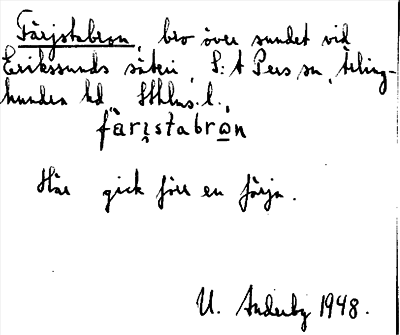 Färjstabron, bro över sundet vid
Erikssunds säteri, S:t Pers sn, Ärling-
hundra hd Sthlms l.
färɪstabron
Här gick förr en färja.
U. Anderby 1948.